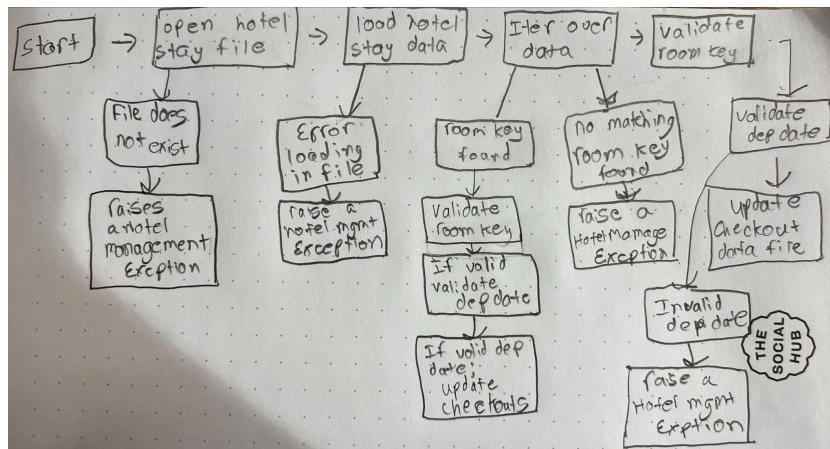 Start
open hotel
stay file
load hotel
stay data
Iter over
data
validate
room key
File does
not exist
raises
a hotel
management
Exeption
Error
loading
in file
raise a
hotel mgmt
Exception
room key
found
Validate
room key
If valid
validate
dep date
If valid dep
date;
update
checkouts
no matching
room key
found
raise a
Hotel Manage
Exception
validate
dep date
update
Checkout
data file
Invalid
dep date
raise a
Hotel mgmt
Exption
THE
SOCIAL
HUB